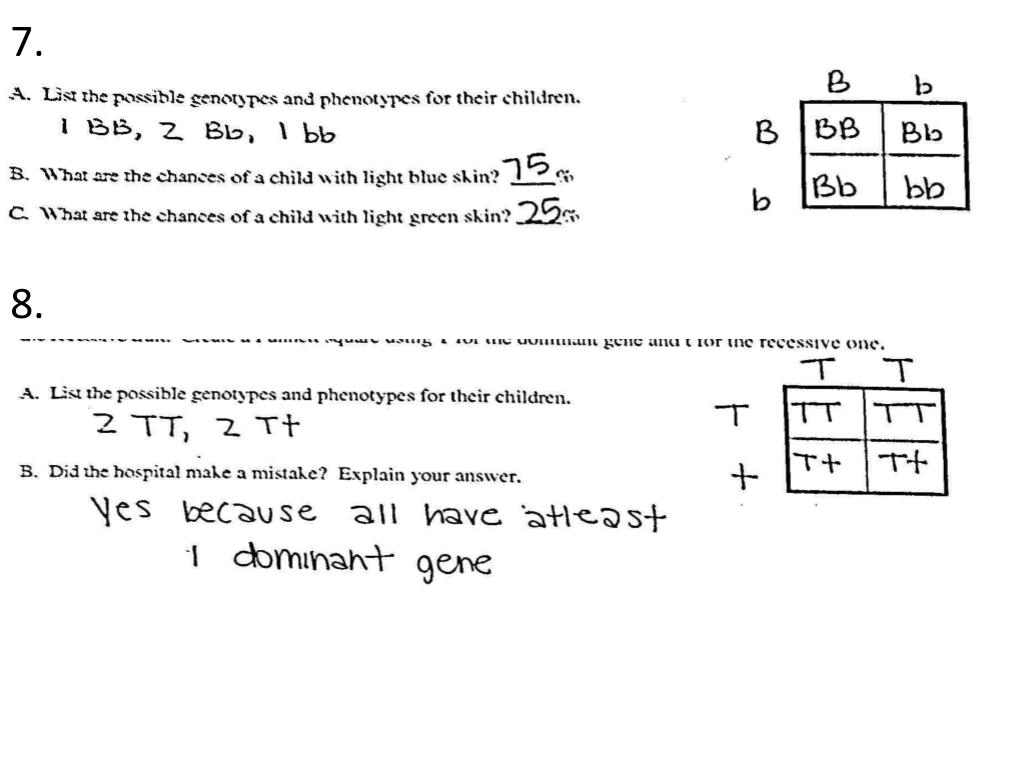 7.
A. List the possible genotypes and phenotypes for their children.
1 BB, 2 Bb, 1 bb
B. What are the chances of a child with light blue skin? 75%
C. What are the chances of a child with light green skin? 25%
B b
B BB Bb
b Bb bb
8.
using T for the dominant gene and t for the recessive one.
A. List the possible genotypes and phenotypes for their children.
2 TT, 2 Tt
B. Did the hospital make a mistake? Explain your answer.
Yes because all have atleast
1 dominant gene
T T
T TT TT
t Tt Tt